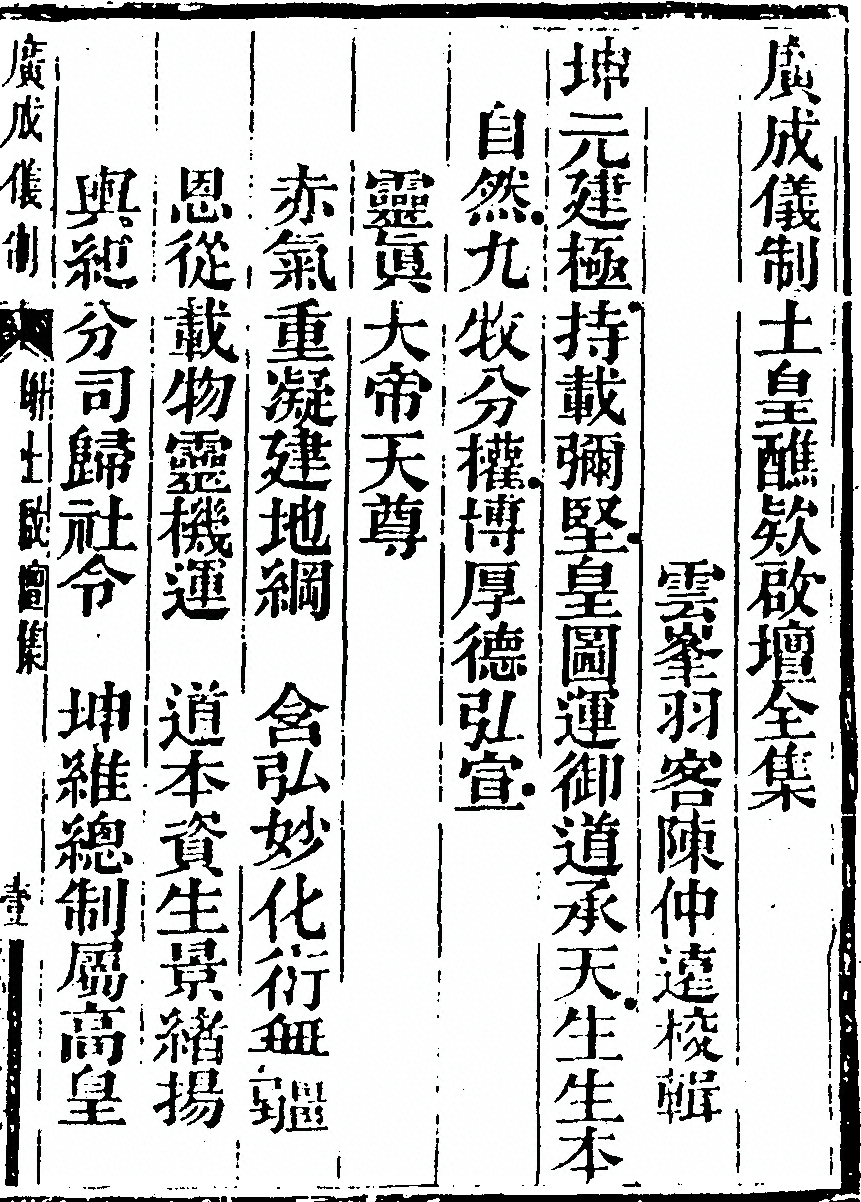 廣成儀制土皇醮欵啟壇全集
雲峯羽客陳仲遠校輯
坤元建極持載彌堅皇圖運御道承天生生本
自然九牧分權博厚德弘宣
靈眞大帝天尊
赤氣重凝建地綱　含弘妙化衍無疆
恩從載物靈機運　道本資生景緒揚
輿綂分司歸社令　坤維總制屬高皇
廣成儀制　土啟壇集　壹